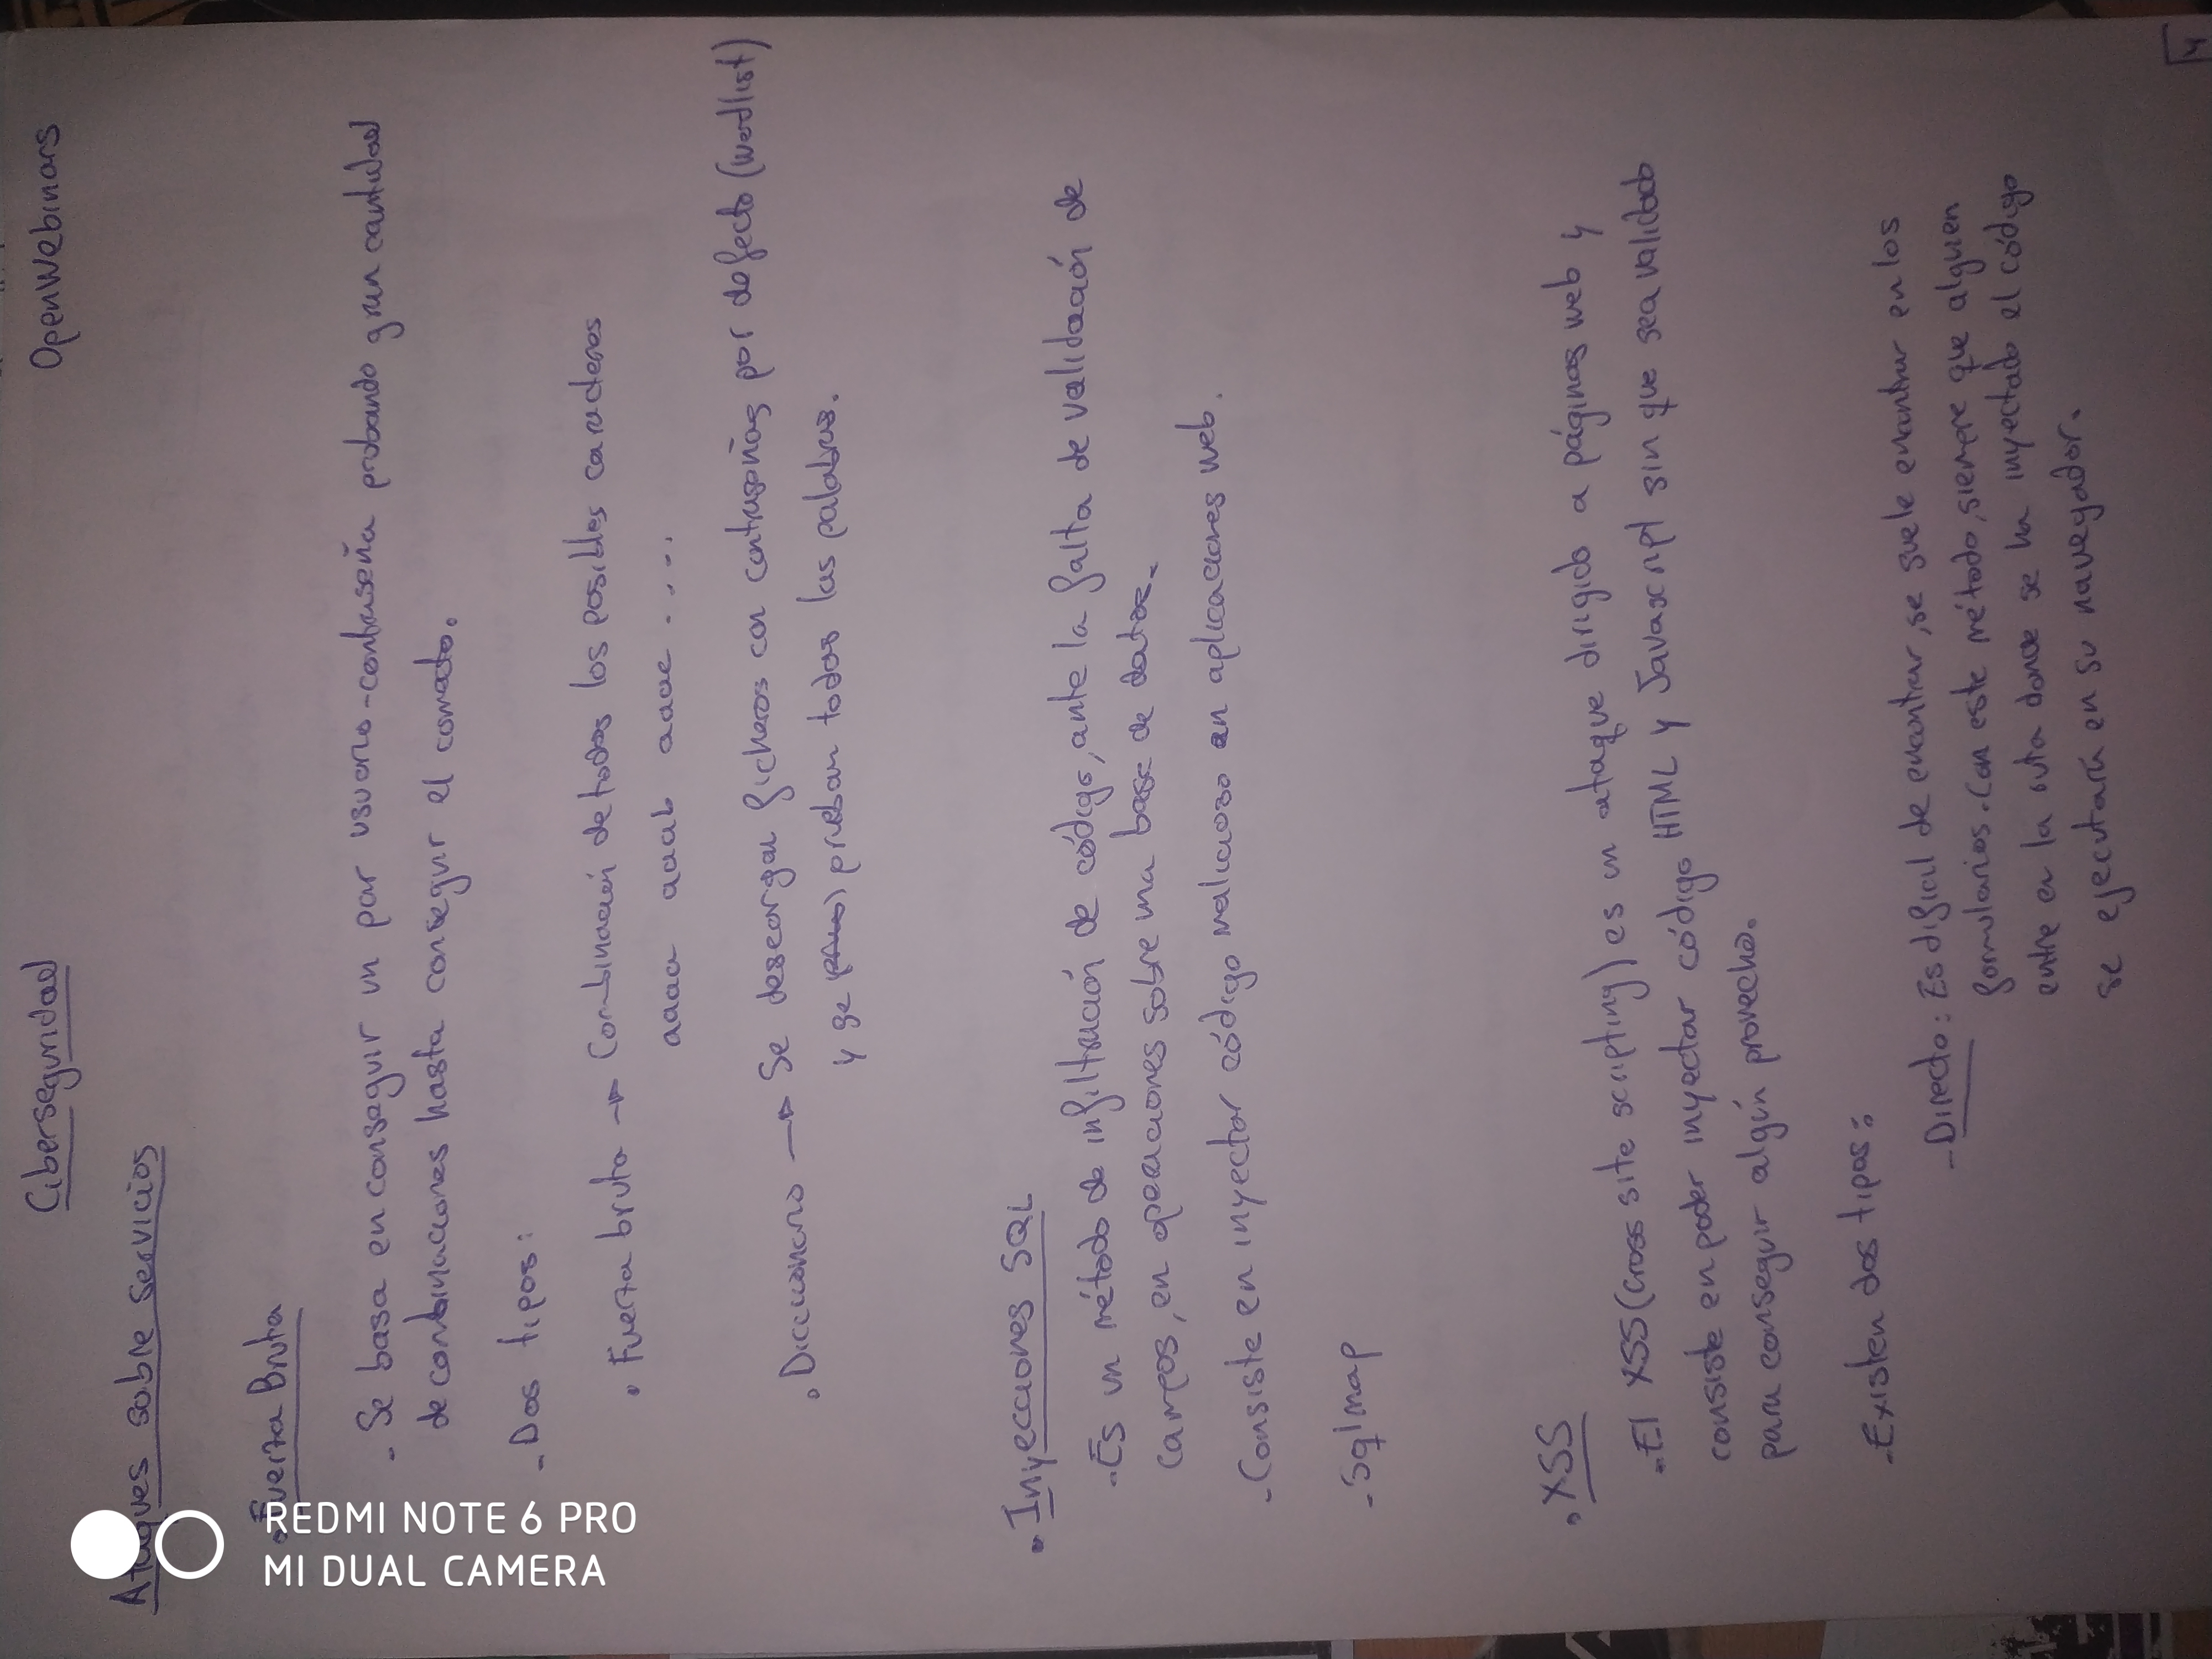 Ciberseguridad OpenWebinars
Ataques sobre servicios
• Fuerza Bruta
- Se basa en conseguir un par usuario-contraseña probando gran cantidad
de combinaciones hasta conseguir el correcto.
- Dos tipos:
• Fuerza bruta → Combinación de todos los posibles caracteres
aaaa aaab aaac ....
• Diccionario → Se descargan ficheros con contraseñas por defecto (wordlist)
y se prueban todas las palabras.
• Inyecciones SQL
- Es un método de infiltración de código, ante la falta de validación de
campos, en operaciones sobre una base de datos.
- Consiste en inyectar código malicioso en aplicaciones web.
- Sqlmap
• XSS
- El XSS (cross site scripting) es un ataque dirigido a páginas web y
consiste en poder inyectar código HTML y Javascript sin que sea validado
para conseguir algún provecho.
- Existen dos tipos:
- Directo: Es difícil de encontrar, se suele encontrar en los
formularios. Con este método, siempre que alguien
entre en la ruta donde se ha inyectado el código
se ejecutará en su navegador.
4
REDMI NOTE 6 PRO
MI DUAL CAMERA